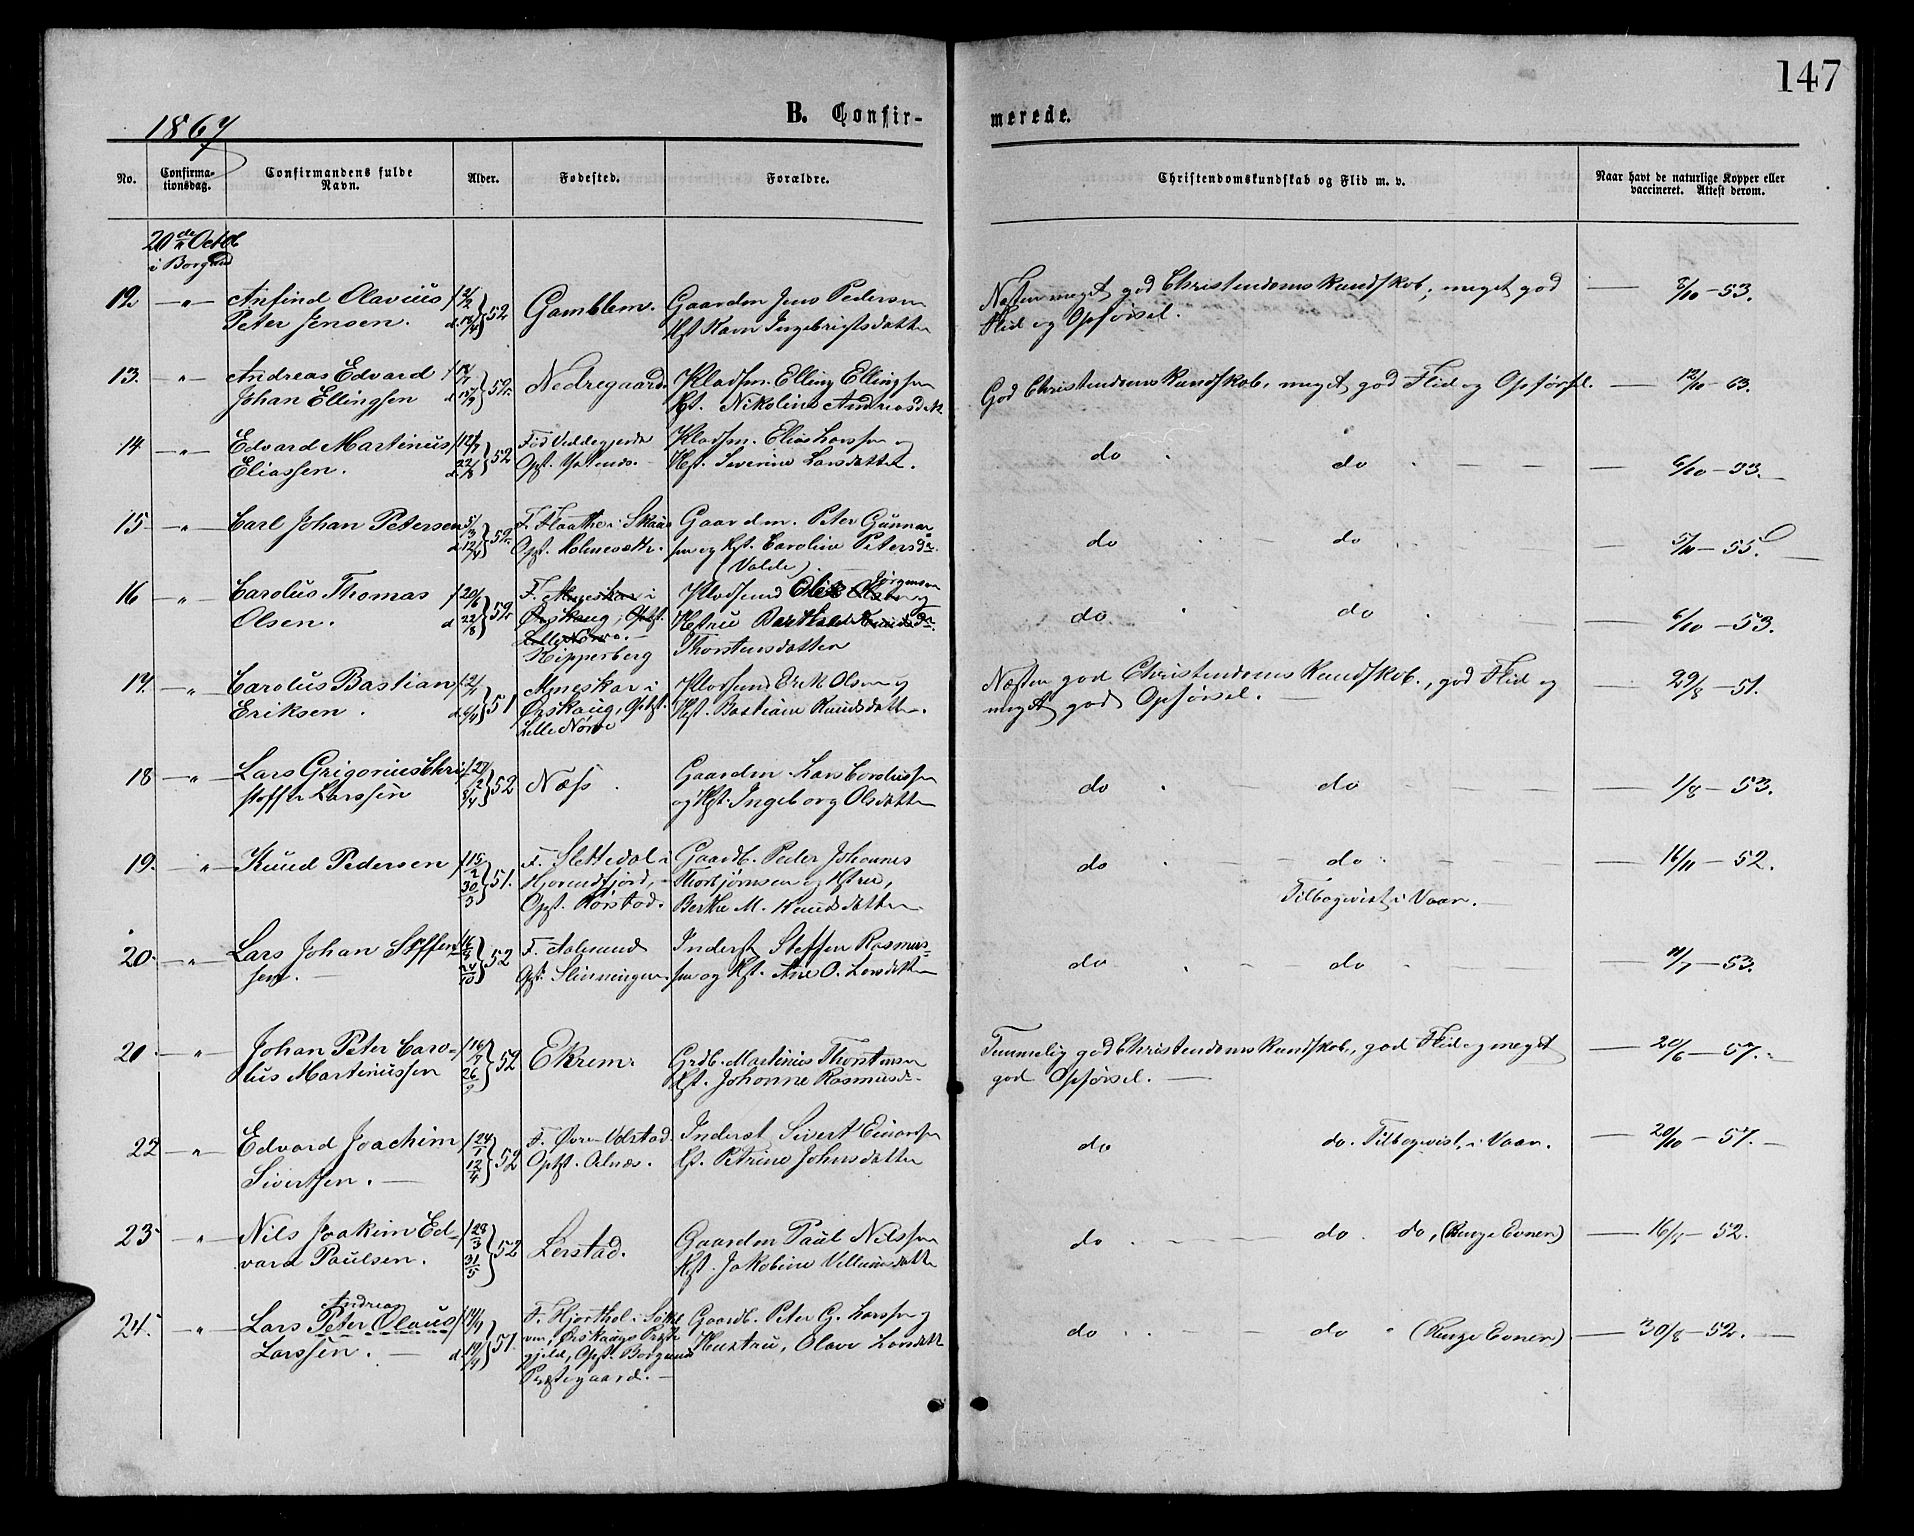 147
1867
B. Confir-
merede.
No.
Confirma-
tionsdag.
Confirmandens fulde
Navn.
Alder.
Fødested.
Forældre.
Christendomskundskab og Flid m. v.
Naar havt de naturlige Kopper eller
vaccineret. Attest derom.
20de Octob
i Borgund
12. — „ — Olavius
Peter Jensen.
52
Gamblem.
Gaardm Jens Pedersen
Ingebrigtsdatter
Næsten meget god Christendomskundskab, meget god
Flid og Opførsel.
— 3/10 — 53.
13. — „ — Andreas Edvard
Johan Ellingsen
52
Nedregaard.
Pladsm. Elling Ellingsen
Hst. Nikoline Andreasdt
God Christendomskundskab, meget god Flid og Opførsel. — 12/10 — 63.
14 — „ — Edvard Martinus
Eliassen.
22/8 52
Pladsm. Elias Larssen og
Hst. Severine Larsdatter.
do do — 6/10 — 53.
15 — „ — Carl Johan Petersen
5/3
52
F. Flaathe i
Opf. Holmesæth.
Gaardm. Peter Gunnar
sen og Hst. Caroline Petersdr.
(Valde)
do do — 55.
16 — „ — Carolus Thomas
Olsen.
f 20/6
d 22/8 52
F.
Ørskoug, Opf.
Lille Nørve. —
Kipperberg
Jørgensen
Pladsmand
Hustru
Thorstensdatter
do do 6/10 — 53.
17. — „ — Carolus Bastian
Eriksen.
51
i
Ørskoug, Opf.
Lille Nørve
Pladsmand Erik Olsen og
Hst. Bastiane Knudsdatter.
Næsten god Christendomskundskab, god Flid og
meget god Opførsel. —
29/8 — 51.
18 — „ — Lars Grigorius Chri
stoffer Larssen
52
Næss.
Gaardm. Lars
og Hst. Ingeborg Olsdatter
do do — 1/8 — 53.
19. „ — Knud Pedersen
f 15/2
30/3 51.
F. Slettedal i
Hjørendfjord, —
Opf. Hørstad.
Gaardb. Peder Johannes
Thorbjørnsen og Hstru,
Berthe M. Knudsdatter
do do
Tilbagevist i Vaar. —
— 16/11 — 52.
20. — „ — Lars Johan Steffen
sen. —
52
F. Aalesund
Opf. Slinningen.
Inderst Steffen Rasmus-
sen og Hst. Ane O. Larsdatter
do do
11/7 — 53.
20 — „ — Johan Peter Caro-
lus Martinussen
16/7
26/9 52
Ekrem.
Grdb. Martinus Thorstensen
Hst. Johanne Rasmusd.
Temmelig god Christendomskundskab, god Flid og meget
god Opførsel. —
— 20/6 — 57.
22 — „ — Edvard Joachim
Sivertsen. —
24/1
12/4 52
F. Øvre-
Opf. Alnæs.
Inderst Sivert Einarsen
Hst. Petrine Johnsdatter
do do. Tilbagevist i Vaar.
— 20/10 — 57. —
23 — „ — Nils Joakim Ed-
vard Paulsen.
28/3
31/5 52
Lerstad.
Gaardm Paul Nilssen
Hst. Jakobine Villumsdatter
do do do, (Ringe Evner)
— 52.
24. — „ — Lars Peter Olaus
Andreas
Larssen. —
51.
F. Hjorthol i
Ørskougs Præste
gjeld, Opf. Borgund
Præstegaard. —
Gaardb. Peter G. Larssen og
Hustru, Olave Larsdatt
do do (Ringe Evner)
— 30/8 — 52. —